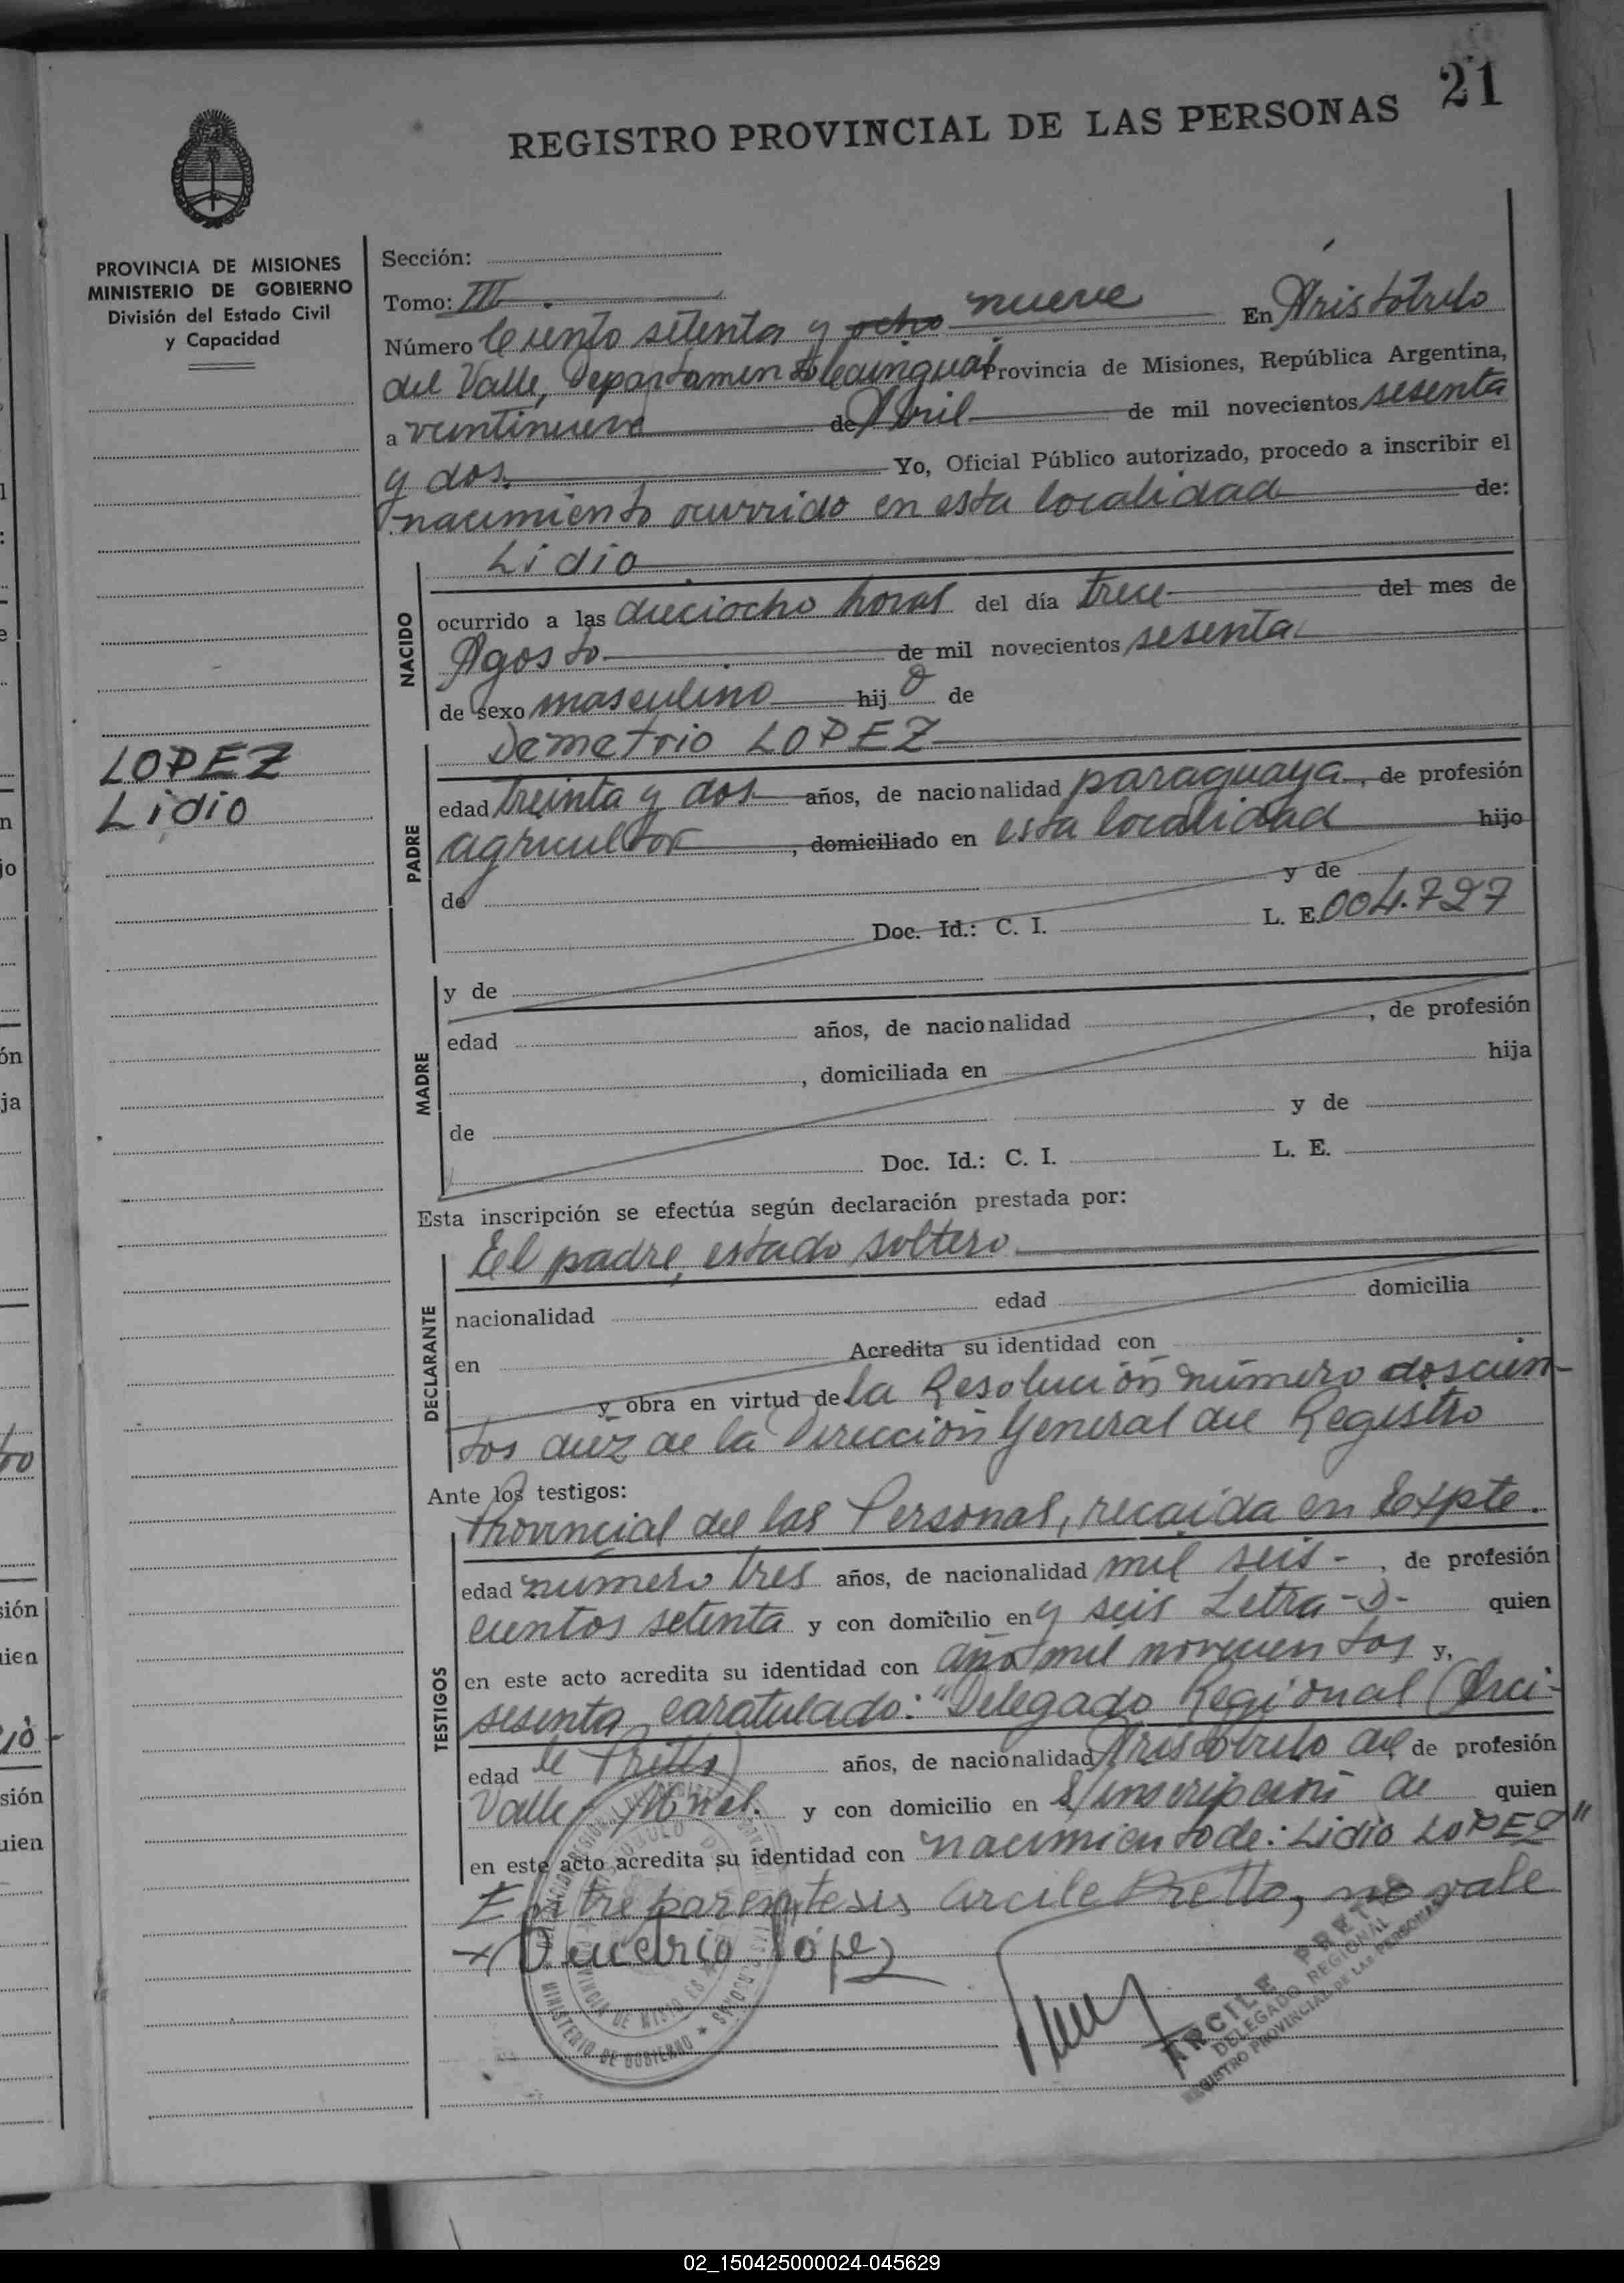 21
REGISTRO PROVINCIAL DE LAS PERSONAS
PROVINCIA DE MISIONES
MINISTERIO DE GOBIERNO
División del Estado Civil
y Capacidad
LOPEZ
Lidio
Sección:
Tomo: III
Número Ciento setenta y ocho nueve En Aristóbulo
del Valle, Departamento Cainguás Provincia de Misiones, República Argentina,
a veintinueve de Abril de mil novecientos sesenta
y dos. Yo, Oficial Público autorizado, procedo a inscribir el
nacimiento ocurrido en esta localidad de:
NACIDO
Lidio
ocurrido a las dieciocho horas del día trece del mes de
Agosto de mil novecientos sesenta
de sexo masculino hijo de
PADRE
Demetrio LOPEZ
edad treinta y dos años, de nacionalidad paraguaya, de profesión
agricultor, domiciliado en esta localidad hijo
de y de
Doc. Id.: C. I. L. E. 004.727
MADRE
y de
edad años, de nacionalidad , de profesión
, domiciliada en hija
de y de
Doc. Id.: C. I. L. E.
Esta inscripción se efectúa según declaración prestada por:
DECLARANTE
El padre, estado soltero
nacionalidad edad domicilia
en Acredita su identidad con
y obra en virtud de la Resolución número doscien-
tos diez de la Dirección General del Registro
Ante los testigos:
TESTIGOS
Provincial de las Personas, recaida en Expte.
edad número tres años, de nacionalidad mil seis- , de profesión
cientos setenta y con domicilio en y seis Letra -D- quien
en este acto acredita su identidad con año mil novecientos y,
sesenta caratulado: "Delegado Regional (Arci-
edad le Pretto) años, de nacionalidad Aristóbulo del de profesión
Valle y con domicilio en S/inscripción de quien
en este acto acredita su identidad con nacimiento de: Lidio LOPEZ"
Entre parentesis Arcile Pretto, no vale
Demetrio López
MINISTERIO DE GOBIERNO
PROVINCIA DE MISIONES
ARCILE PRETTO
DELEGADO REGIONAL
REGISTRO PROVINCIAL DE LAS PERSONAS
02_150425000024-045629